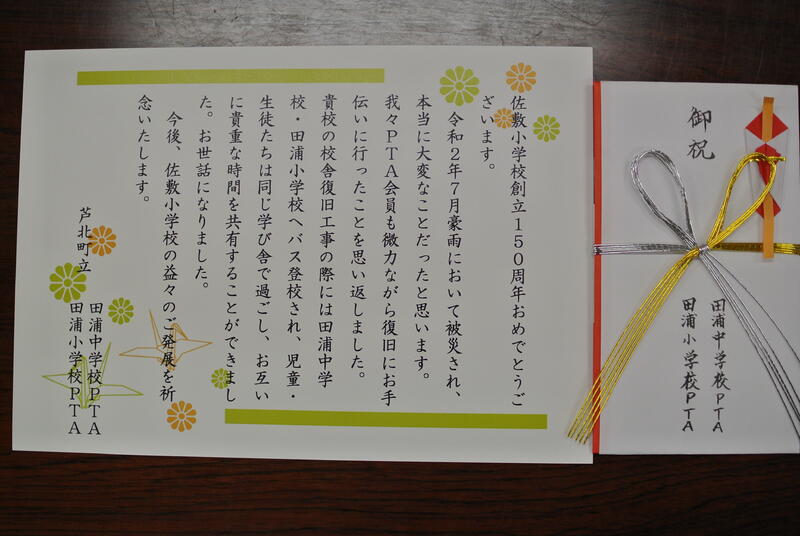 佐敷小学校創立150周年おめでとうご
ざいます。
令和2年7月豪雨において被災され、
本当に大変なことだったと思います。
我々PTA会員も微力ながら復旧にお手
伝いに行ったことを思い返しました。
貴校の校舎復旧工事の際には田浦中学
校・田浦小学校へバス登校され、児童・
生徒たちは同じ学び舎で過ごし、お互い
に貴重な時間を共有することができまし
た。お世話になりました。
今後、佐敷小学校の益々のご発展を祈
念いたします。
芦北町立
田浦中学校PTA
田浦小学校PTA
御祝
田浦中学校PTA
田浦小学校PTA